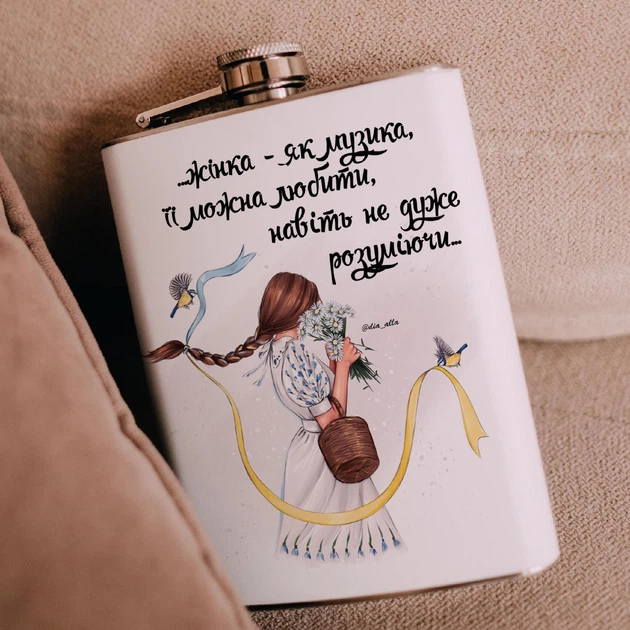 ...жінка - як музика,
її можна любити,
навіть не дуже
розуміючи...
@dia_alla